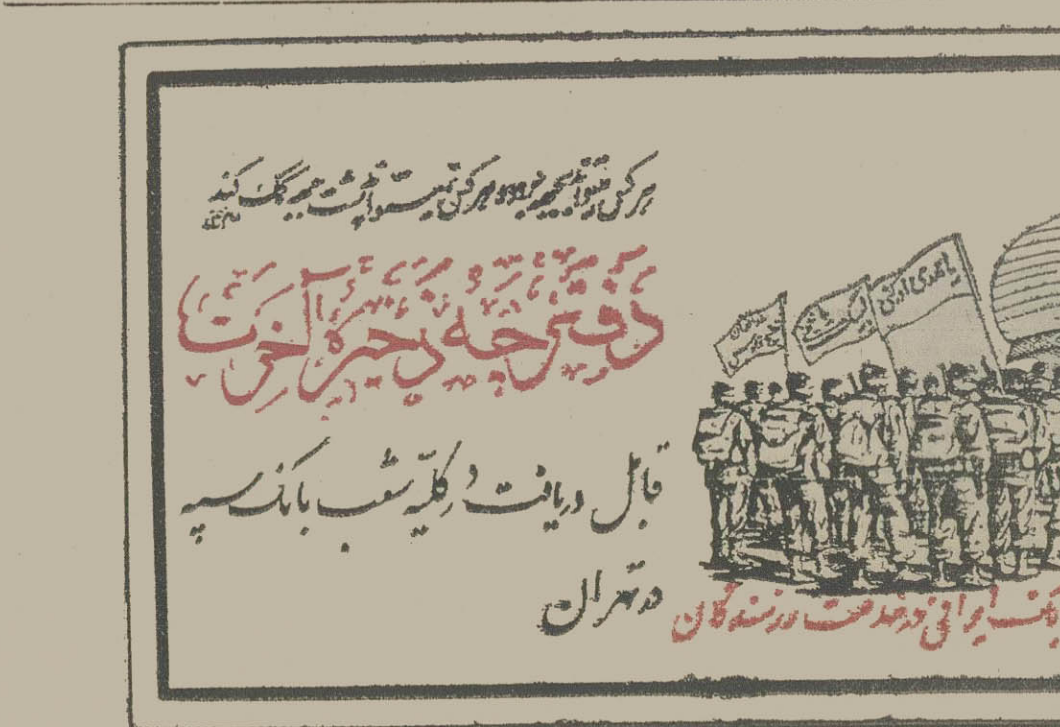 هر کس میتواند بجبهه برود و هر کس نمیتواند پشت جبهه کمک کند
دَفتَرچِه ذَخیرَهٔ آخِرَت
قابل دریافت در کلیّه شعب بانک سپه
در تهران
بانک ایرانی در خدمت رزمندگان